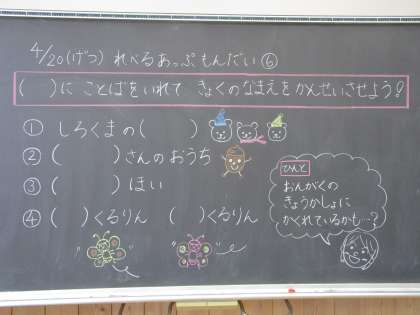 4/20(げつ) れべるあっぷもんだい⑥
( )に ことばをいれて きょくのなまえをかんせいさせよう!
① しろくまの( )
② ( )さんのおうち
③ ( )ほい
④ ( )くるりん ( )くるりん
ひんと
おんがくの
きょうかしょに
かくれているかも…?